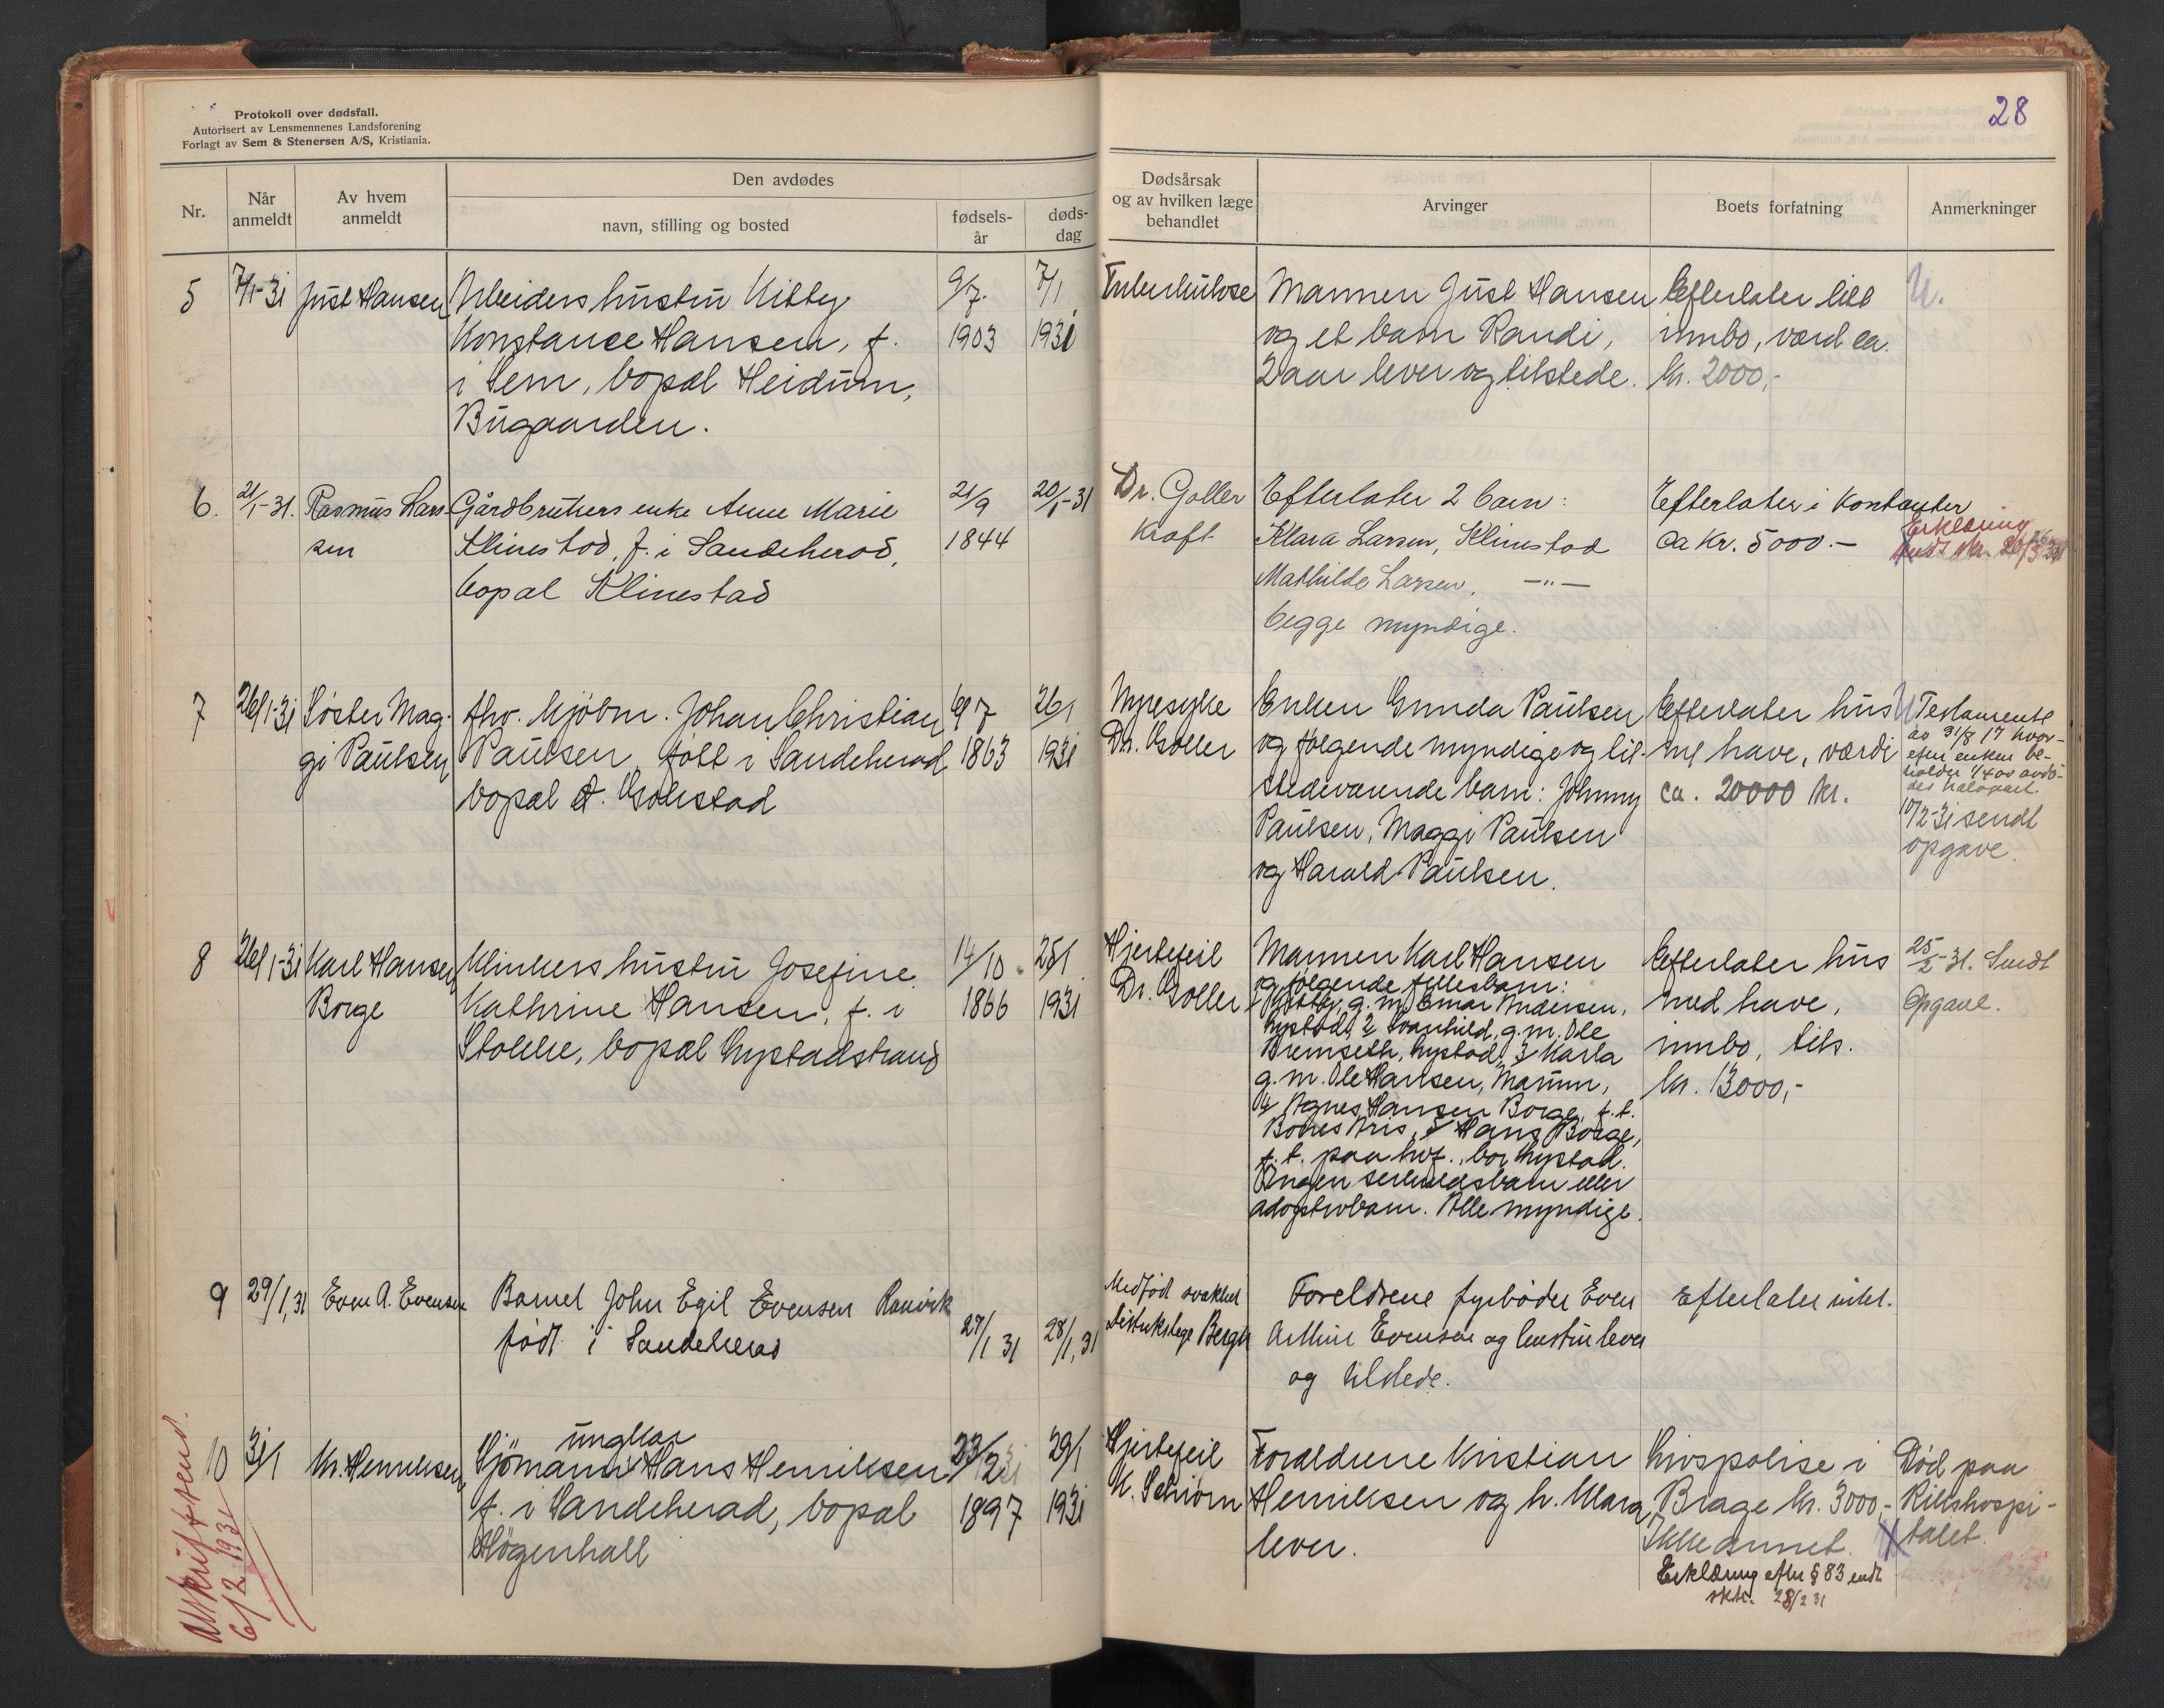 Protokoll over dødsfall.
Autorisert av Lensmennenes Landsforening
Forlagt av Sem & Stenersen A/S, Kristiania.
28
Nr.
Når anmeldt
Av hvem anmeldt
Den avdødes
navn, stilling og bosted
fødsels-år
døds-dag
Dødsårsak og av hvilken læge behandlet
Arvinger
Boets forfatning
Anmerkninger
5
7/1-31
Just Hansen
Arbeiders hustru Kitty
Konstance Hansen, f.
i Sem, bopæl Heidum,
Bugaarden.
9/7.
1903
7/1
1931
Tuberkulose
Mannen Just Hansen
og et barn Randi,
2 aar lever og tilstede.
Efterlater litt
innbo, værd ca.
kr. 2000,-
U.
6.
21/1-31.
Rasmus Lars-
sen
Gårdbrukers enke Anne Marie
Klinestad, f. i Sandeherad,
bopal Klinestad
21/9
1844
20/1-31
Dr. Goller
Kraft
Efterlater 2 barn:
Klara Larsen, Klinestad
Mathilde Larsen, —"—
begge myndige.
Efterlater i Kontanter
ca Kr. 5000.-
Erklæring
7
26/1-31
Søster Mag-
gi Paulsen
fhv. skjøtm. Johan Christian
Paulsen, født i Sandeherad
bopæl
1863
26/1
1931
Nyresyke
Dr. Goller
Enken Gunda Paulsen
og følgende myndige og til-
stedeværende barn: Johnny
Paulsen, Maggi Paulsen
og Harald Paulsen.
Efterlater hus
med have, værdi
ca. 20000 kr.
U Testamente
av 31/8 17 hvor-
efter enken be-
holder 1/4 av avdø-
des halvpart.
10/2-31 sendt
opgave.
8
26/1-31
Karl Hansen
Borge
Klinkers hustru Josefine
Kathrine Hansen, f. i
Stokke, bopæl Nystadstrand
14/10
1866
25/1
1931
Hjertefeil
Dr. Goller
Mannen Karl Hansen
og følgende fellesbarn:
g. m. Einar Andersen,
Nystad, 2 Svanhild, g. m. Ole
Bremseth, Nystad, 3 Karla
g. m. Ole Hansen,
4 Agnes Hansen Borge, f. t.
5 Hans Borge,
f. t. paa hvf., bor Nystad.
Ingen serkuldsbarn eller
adoptivbarn. Alle myndige.
Efterlater hus
med have,
innbo, tils.
kr. 13000,-
25/2-31. Sendt
Opgave.
9
29/1,31
Even A. Evensen
Barnet John Egil Evensen Ranvik
født i Sandeherad
27/1 31
28/1,31
Medfød svakhet
Distrikslege Bergh
Foreldrene fyrbøder Even
Arthur Evensen og hustru lever
og tilstede.
Efterlater intet.
10
31/1
Kr. Henriksen
ungkar
Sjömann Hans Henriksen
f. i Sandeherad, bopæl
Högenhall
23/2
1897
29/1
1931
Hjertefeil
K. Schiørn
Foreldrene Kristian
Henriksen og h. Klara
lever.
Livspolise i
Brage kr. 3000,-
Ikke annet.
Erklæring efter § 83 sendt
skr. 28/2 31
Død paa
Rikshospi-
talet.
Avskrift send.
6/2 1931